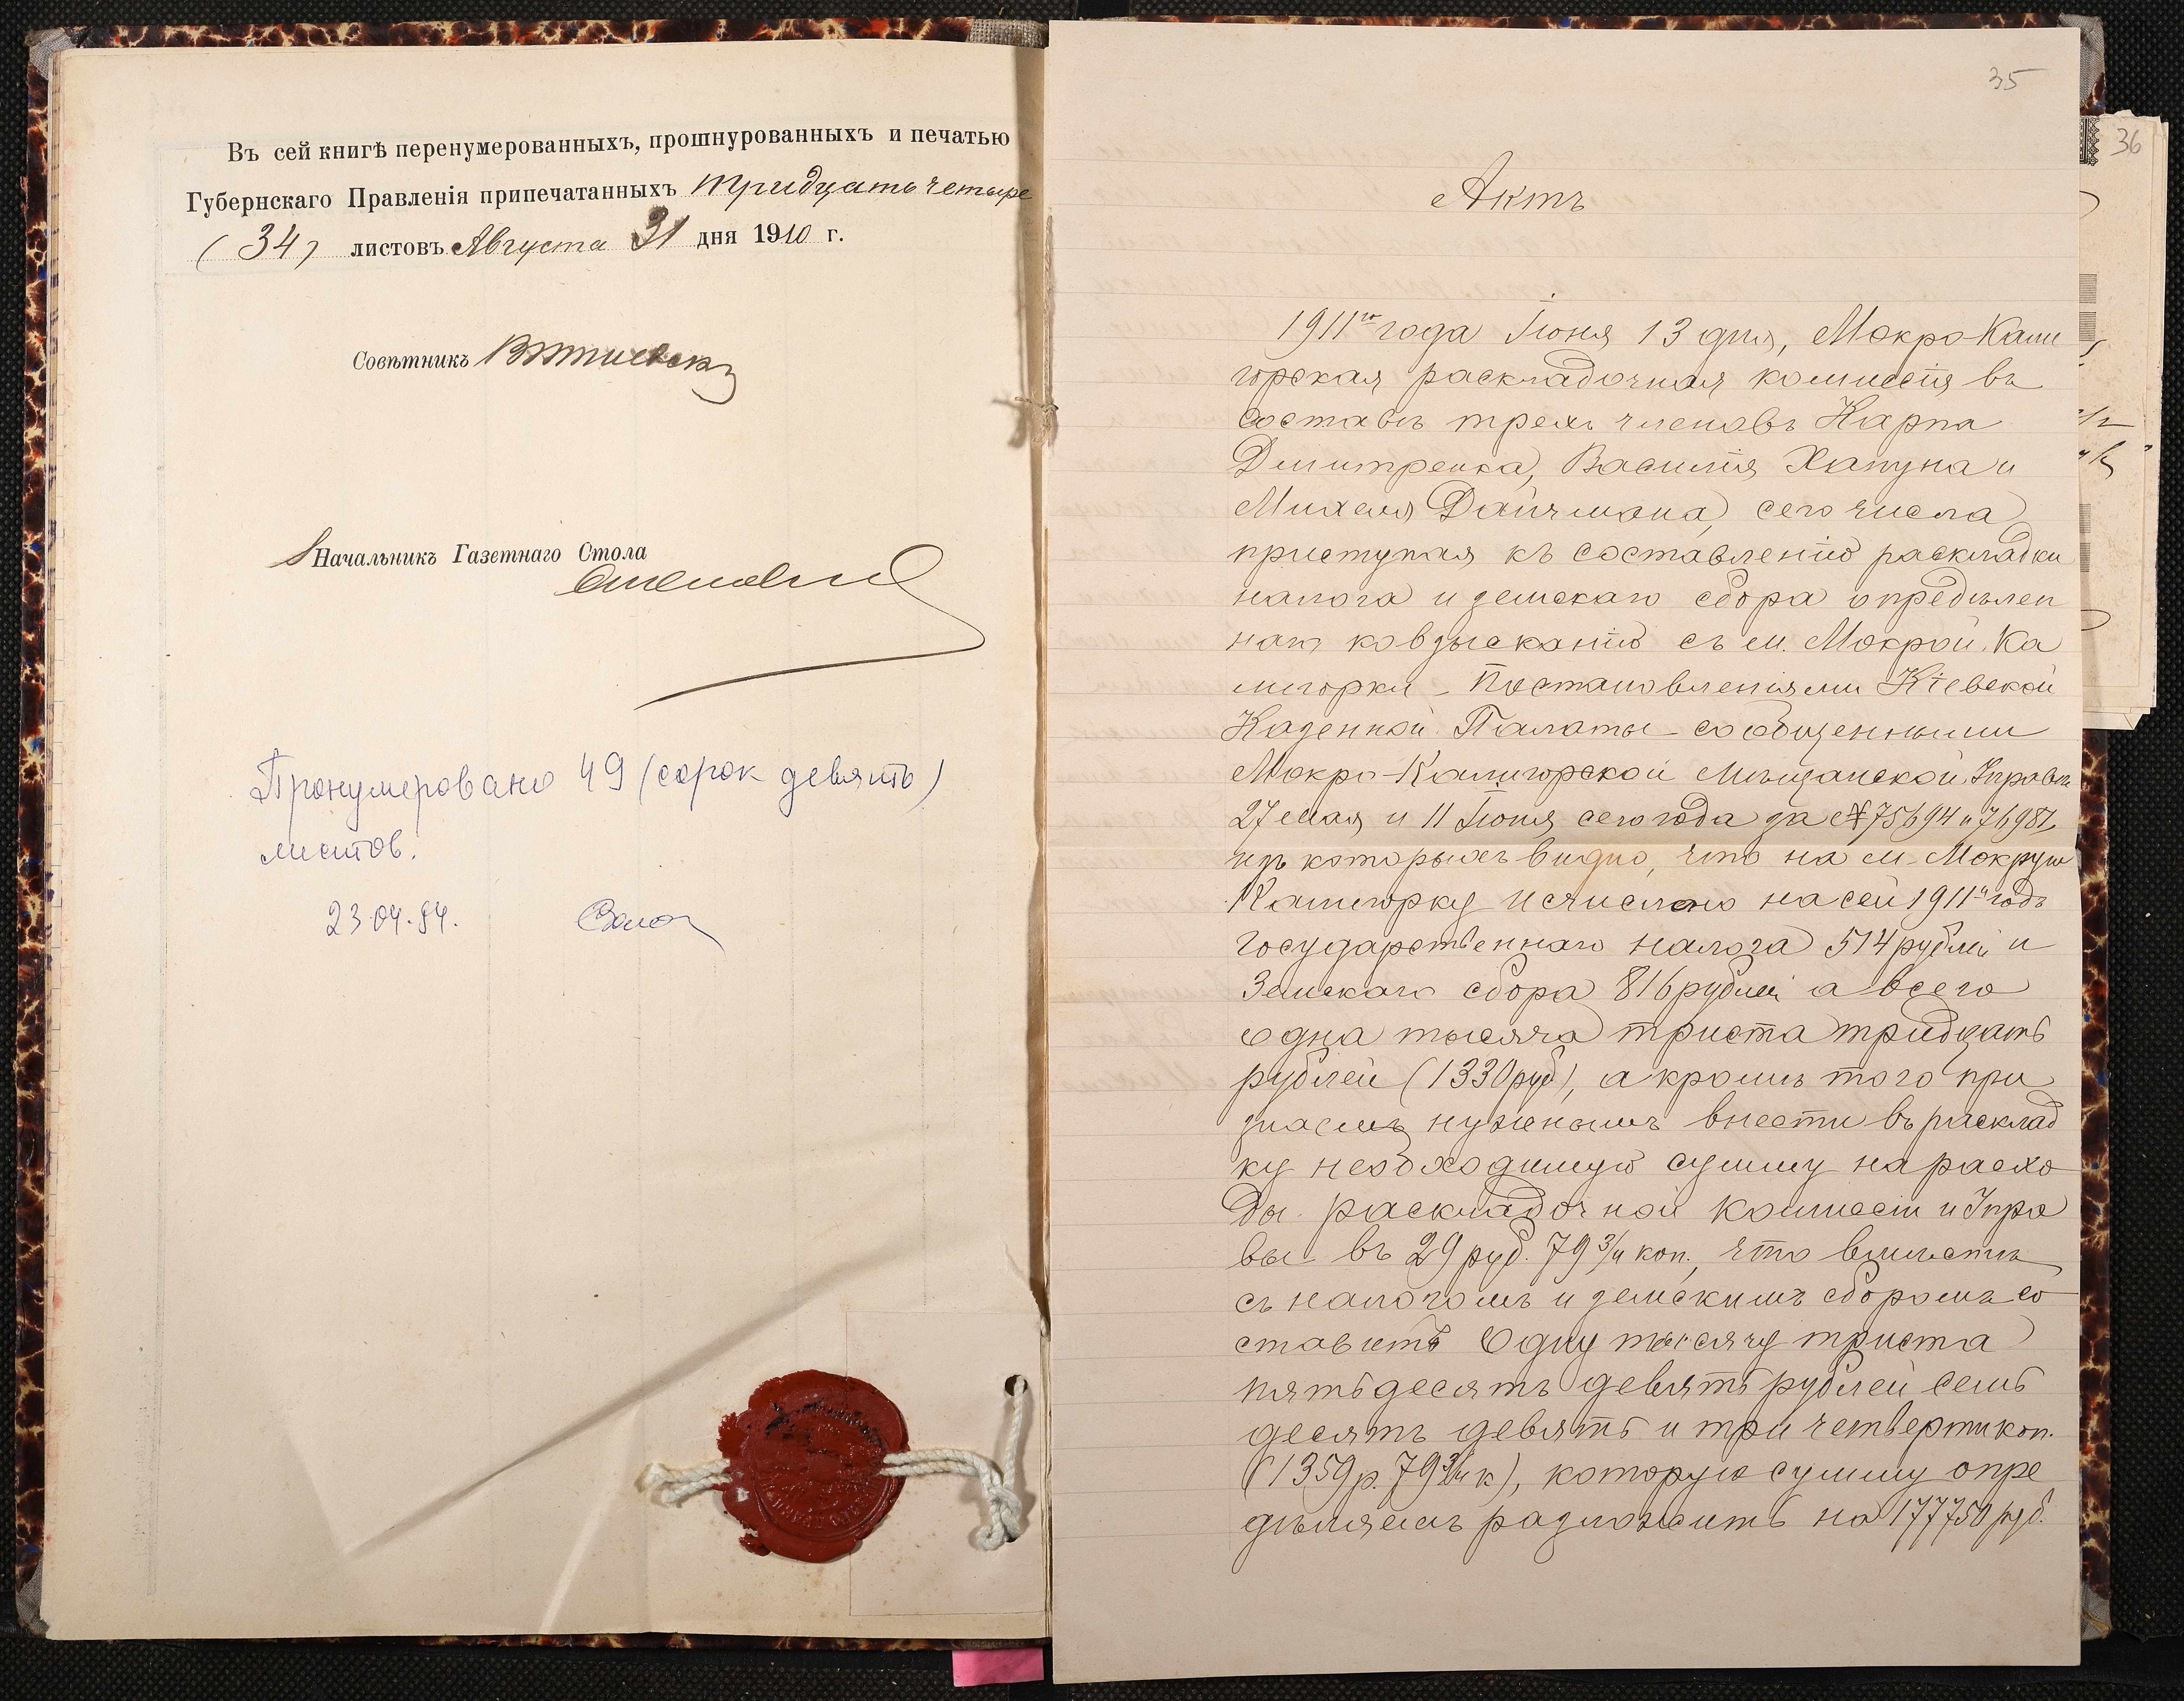 Въ сей книгѣ перенумерованныхъ, прошнурованныхъ и печатью
Губернскаго Правленія припечатанныхъ тридцать четыре
(34) листовъ Августа 31 дня 1910 г.
Совѣтникъ
Начальникъ Газетнаго Стола
Пронумеровано 49 (сорок девять)
листов.
23.04.84.
35
Актъ
1911го года Іюня 13 дня, Мокро-Кали
горская раскладочная комиссія въ
составѣ трехъ членовъ Карпа
Дмитренка, Василія Хапуна и
Михеля Дайчмана, сего числа
приступая къ составленію раскладки
налога и земскаго сбора опредѣлен
наго ко взысканію съ м. Мокрой Ка
лигорки - Постановленіями Кіевской
Казенной Палаты - сообщенными
Мокро-Калигорской Мѣщанской Управѣ
27 мая и 11 Іюня сего года за № 75694 и 76981,
изъ которыхъ видно, что на м. Мокрую
Калигорку исчислено на сей 1911й годъ
государственнаго налога 514 рублей и
Земскаго сбора 816 рублей а всего
одна тысяча триста тридцать
рублей (1330 руб), а кромѣ того при
знаемъ нужнымъ внести въ расклад
ку необходимую сумму на расхо
ды раскладочной комиссіи и Упра
вы въ 29 руб. 79 3/4 коп., что вмѣстѣ
съ налогомъ и земскимъ сборомъ со
ставитъ Одну тысячу триста
пятьдесятъ девять рублей семь
десятъ девять и три четверти коп.
(1359 р. 79 3/4 к), которую сумму опре
дѣляемъ разложить на 177750 руб.
36